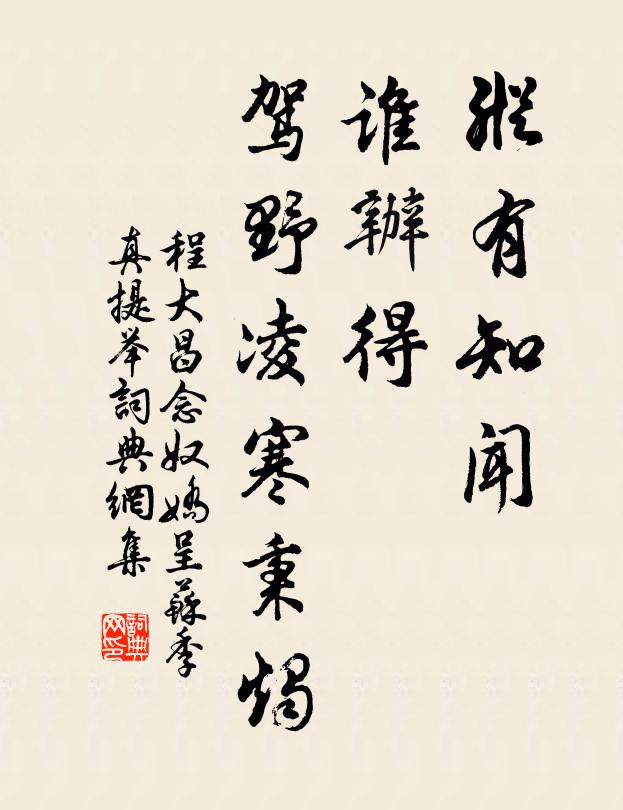 縱有知闻
谁辦得
驾野凌寒秉燭
程大昌念奴嬌呈蘇季
真提举詞典網集
詞典
网印